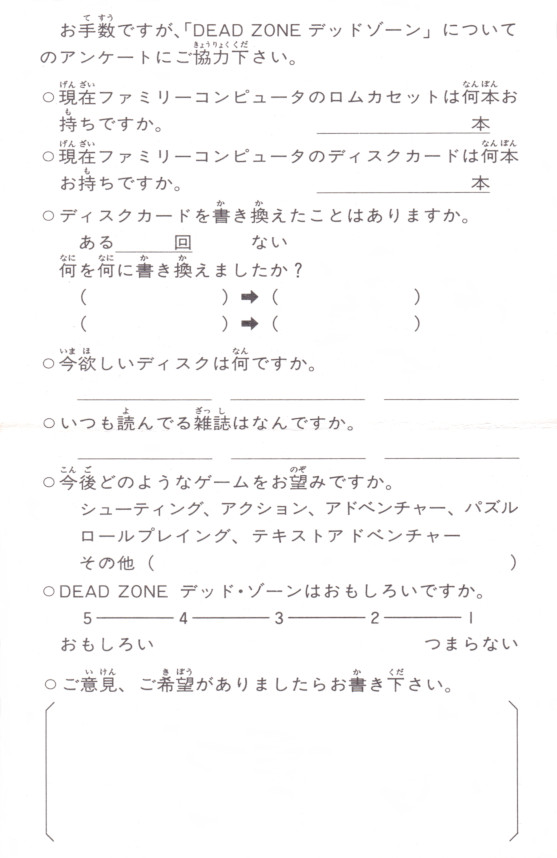 お手数ですが、「DEAD ZONE デッドゾーン」について
のアンケートにご協力下さい。
○現在ファミリーコンピュータのロムカセットは何本お
持ちですか。 本
○現在ファミリーコンピュータのディスクカードは何本
お持ちですか。 本
○ディスクカードを書き換えたことはありますか。
ある 回 ない
何を何に書き換えましたか？
( ) ➡ ( )
( ) ➡ ( )
○今欲しいディスクは何ですか。
○いつも読んでる雑誌はなんですか。
○今後どのようなゲームをお望みですか。
シューティング、アクション、アドベンチャー、パズル
ロールプレイング、テキストアドベンチャー
その他 ( )
○DEAD ZONE デッド・ゾーンはおもしろいですか。
5 4 3 2 1
おもしろい つまらない
○ご意見、ご希望がありましたらお書き下さい。